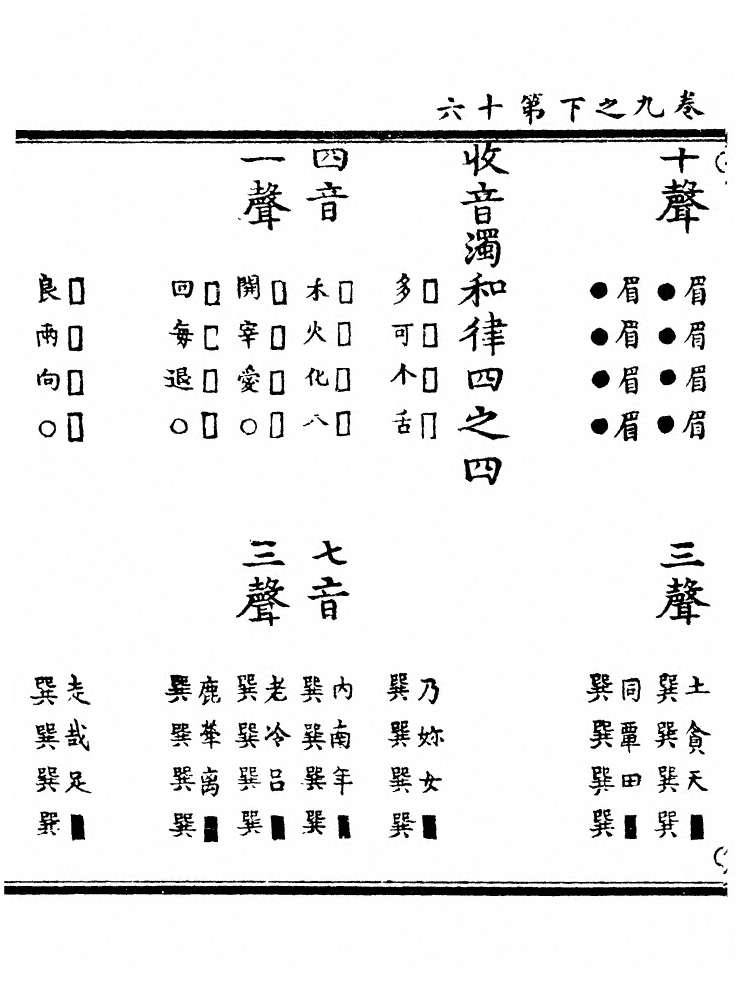 卷九之下第十六
十聲
眉眉眉眉
●●●●
眉眉眉眉
●●●●
三聲
土貪天■
巽巽巽巽
同覃田■
巽巽巽巽
收音濁和律四之四
□□□□
多可个舌
乃妳女■
巽巽巽巽
四音
一聲
□□□□
禾火化八
□□□□
開宰愛○
□□□□
回每退○
□□□□
良兩向○
七音
三聲
内南年■
巽巽巽巽
老冷吕■
巽巽巽巽
鹿犖离■
巽巽巽巽
走哉足■
巽巽巽巽